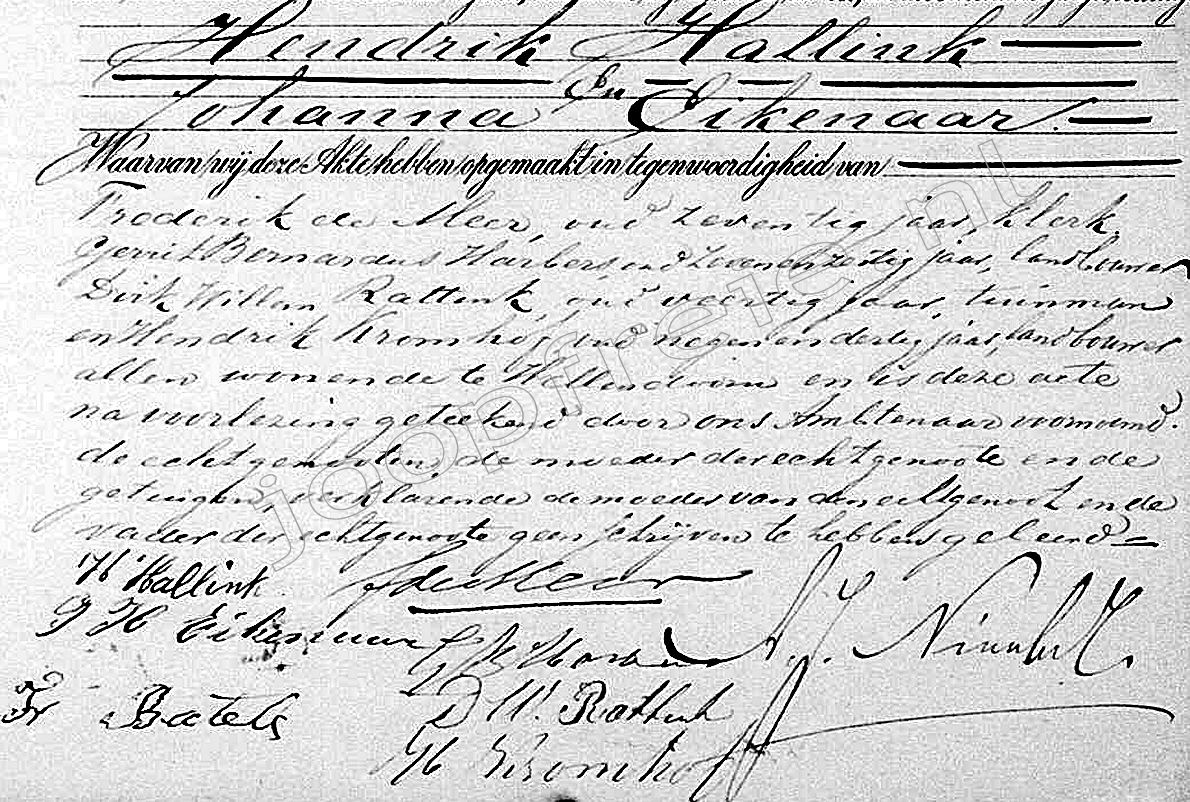 Hendrik Hallink
En
Johanna Eikenaar.
Waarvan wij deze Akte hebben opgemaakt in tegenwoordigheid van
Frederik de Meer, oud zeventig jaar, klerk,
Gerrit Bernardus Harbers, oud zevenenzestig jaar, landbouwer
Dirk Willem Rattink, oud veertig jaar, tuinman
en Hendrik Kromhof, oud negen en dertig jaar, landbouwer
allen wonende te Hellendoorn en is deze acte
na voorlezing geteekend door ons Ambtenaar voornoemd.
de echtgenooten, de moeder der echtgenoote en de
getuigen, verklarende de moeder van den echtgenoot en de
vader der echtgenoote geen schrijven te hebben geleerd
H Hallink. F de Meer
J H Eikenaar A. J.
Bartels D W. Rattink
H Kromhof
joopfreie.nl